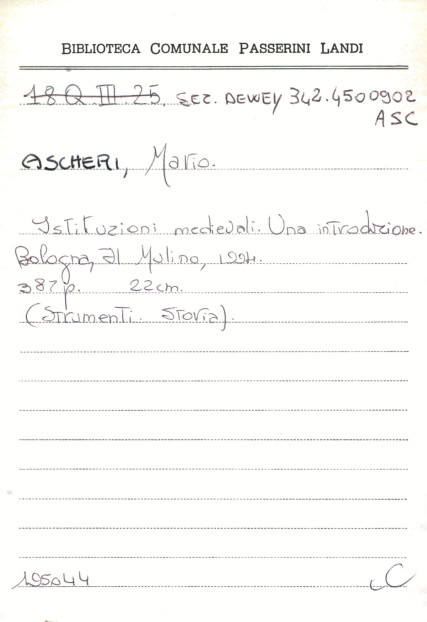 BIBLIOTECA COMUNALE PASSERINI LANDI
18 Q III 25. SEZ. DEWEY 342.4500902
ASC
ASCHERI, Mario.
Istituzioni medievali. Una introduzione.
Bologna, Il Mulino, 1994.
387 p. 22 cm.
(Strumenti. Storia).
195044
C